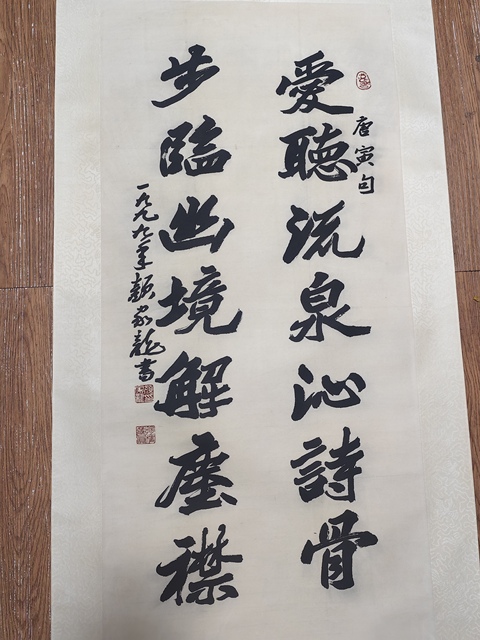 唐寅句
愛聽流泉沁詩骨
步臨幽境解塵襟
一九九九年顏家龍書